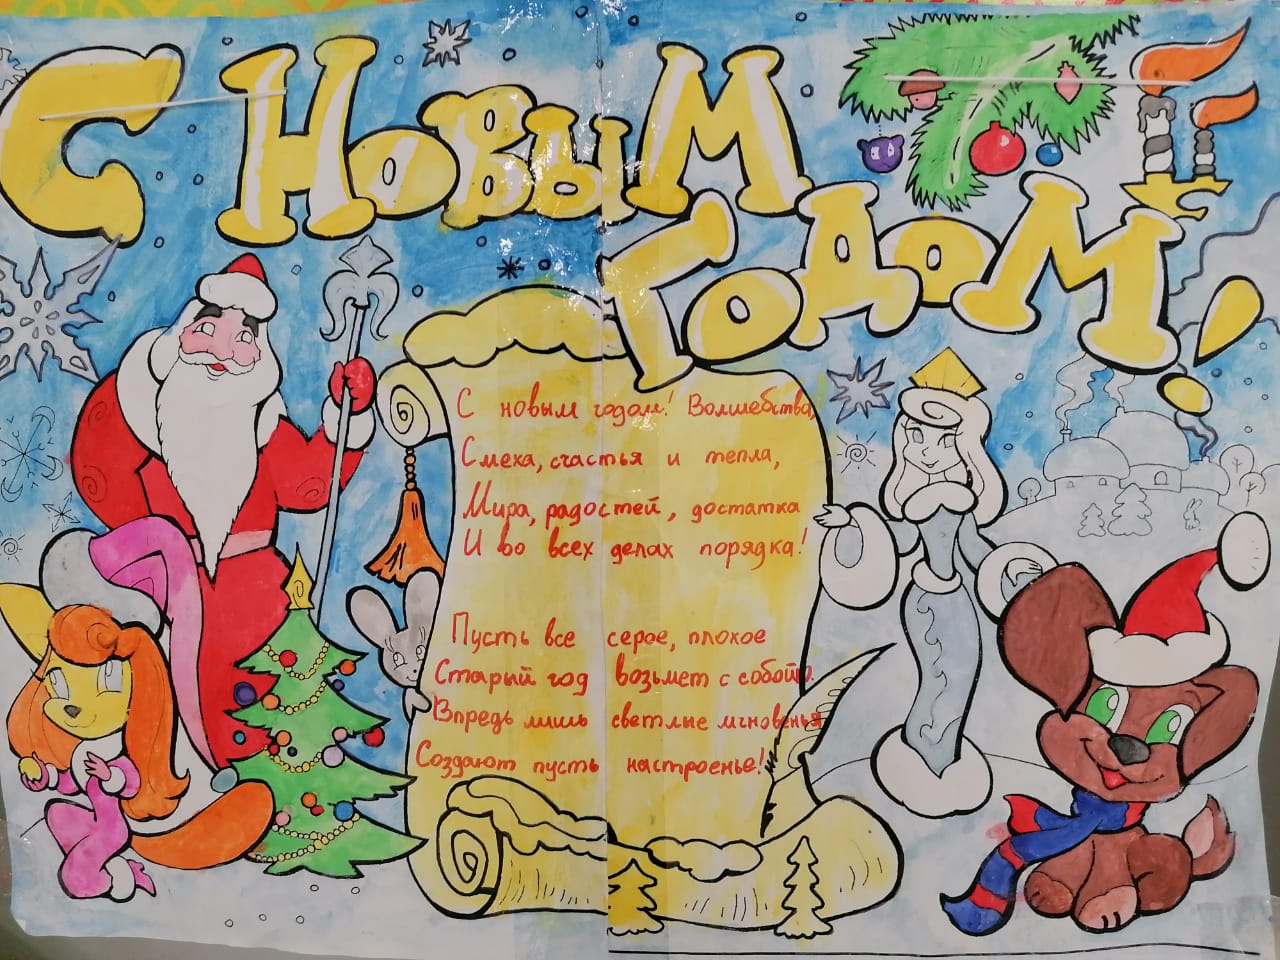 С Новым
Годом!
С новым годом! Волшебства,
Смеха, счастья и тепла,
Мира, радостей, достатка
И во всех делах порядка!
Пусть все серое, плохое
Старый год возьмет с собой.
Впредь лишь светлые мгновенья
Создают пусть настроенье!